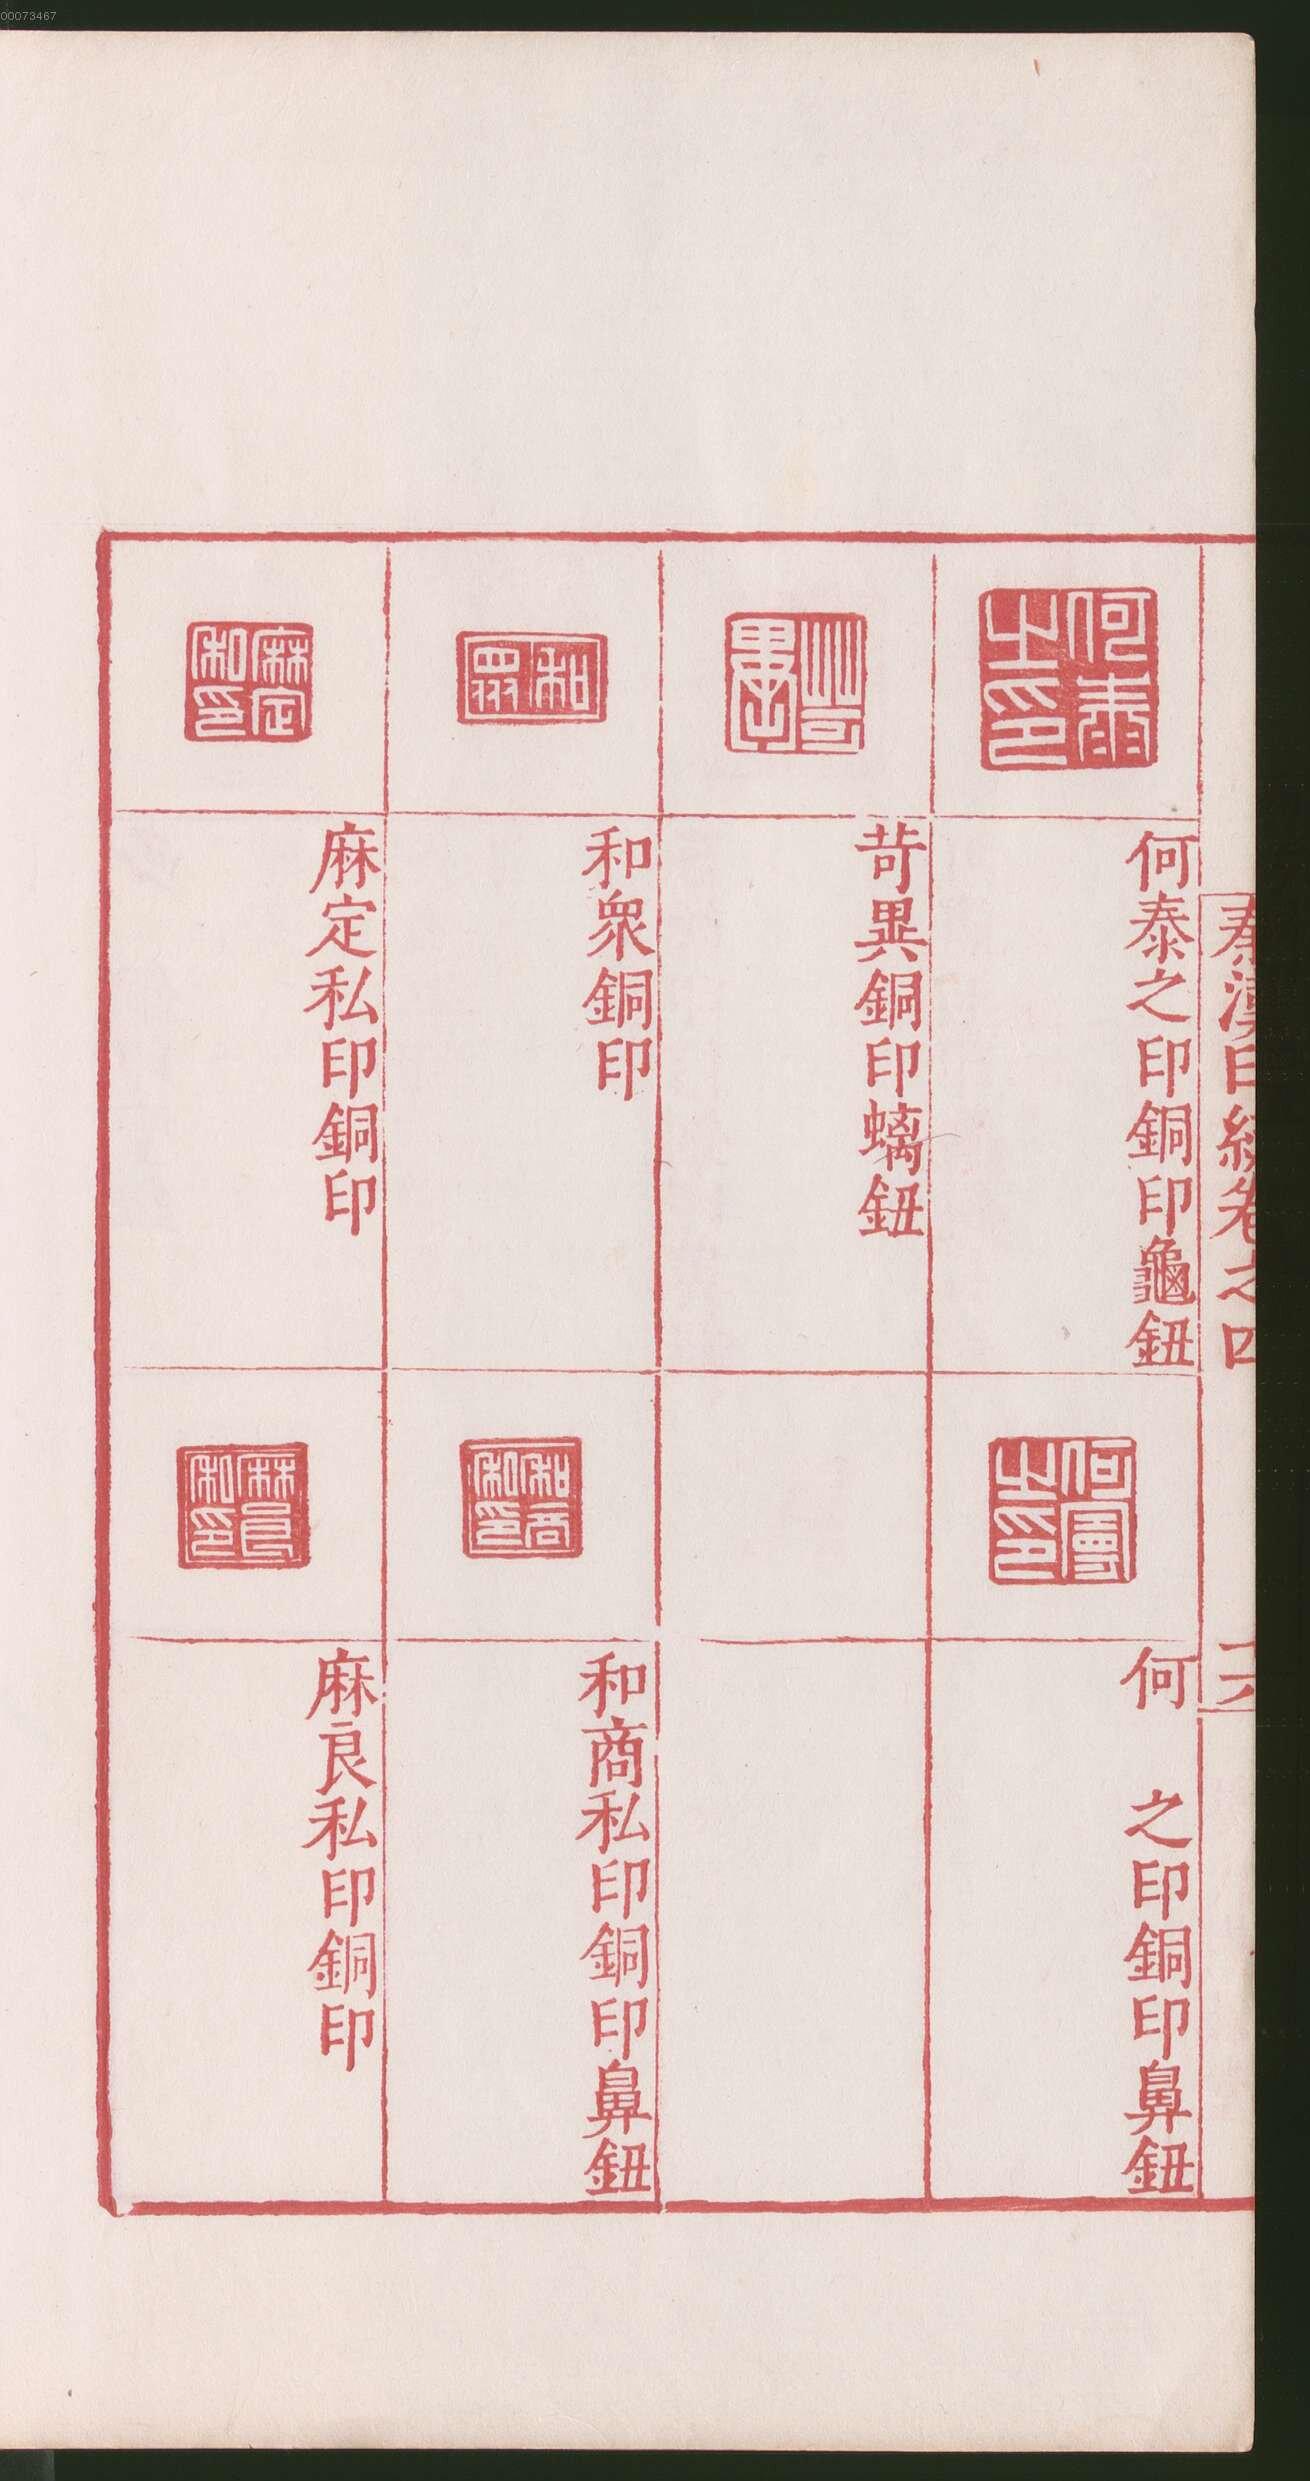 00073467
秦漢印統卷之四
十六
何泰之印
何泰之印銅印龜鈕
何之印
何 之印銅印鼻鈕
苛異銅印螭鈕
和眾
和眾銅印
和商私印
和商私印銅印鼻鈕
麻定私印
麻定私印銅印
麻良私印
麻良私印銅印